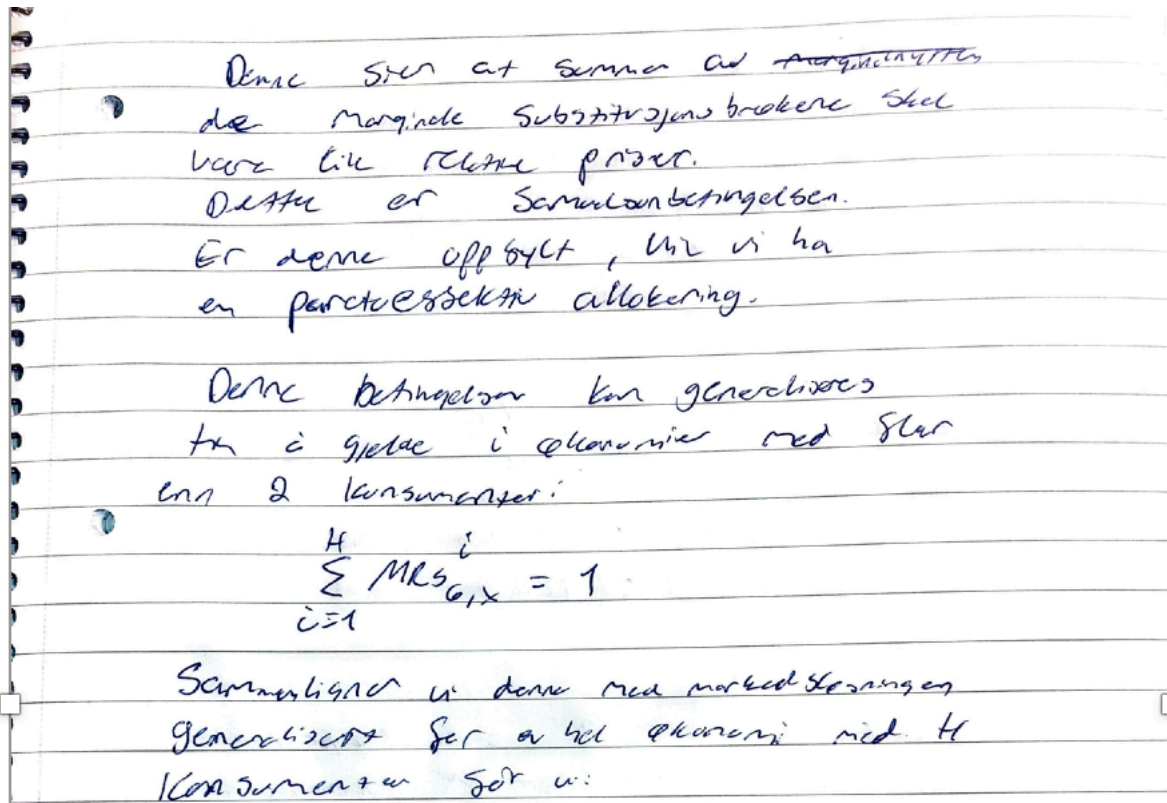 Denne sier at summen av marginalnytten
de marginale substitusjonsbrøkene skal
være lik relative priser.
Dette er Samuelsonbetingelsen.
Er denne oppfylt, vil vi ha
en paretoeffektiv allokering.
Denne betingelsen kan generaliseres
til å gjelde i økonomier med fler
enn 2 konsumenter:
H i
Σ MRS_{G,X} = 1
i=1
Sammenligner vi denne med markedsløsningen
generalisert for en hel økonomi med H
konsumenter får vi: